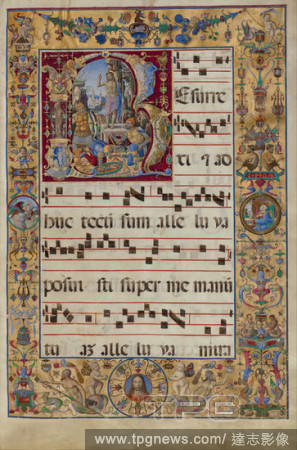 Resurre
xi ⁊ ad
huc tecū sum alle lu ya
posui sti super me manū
tu aʒ alle lu ya mira
TPG
www.tpgnews.com / 達志影像